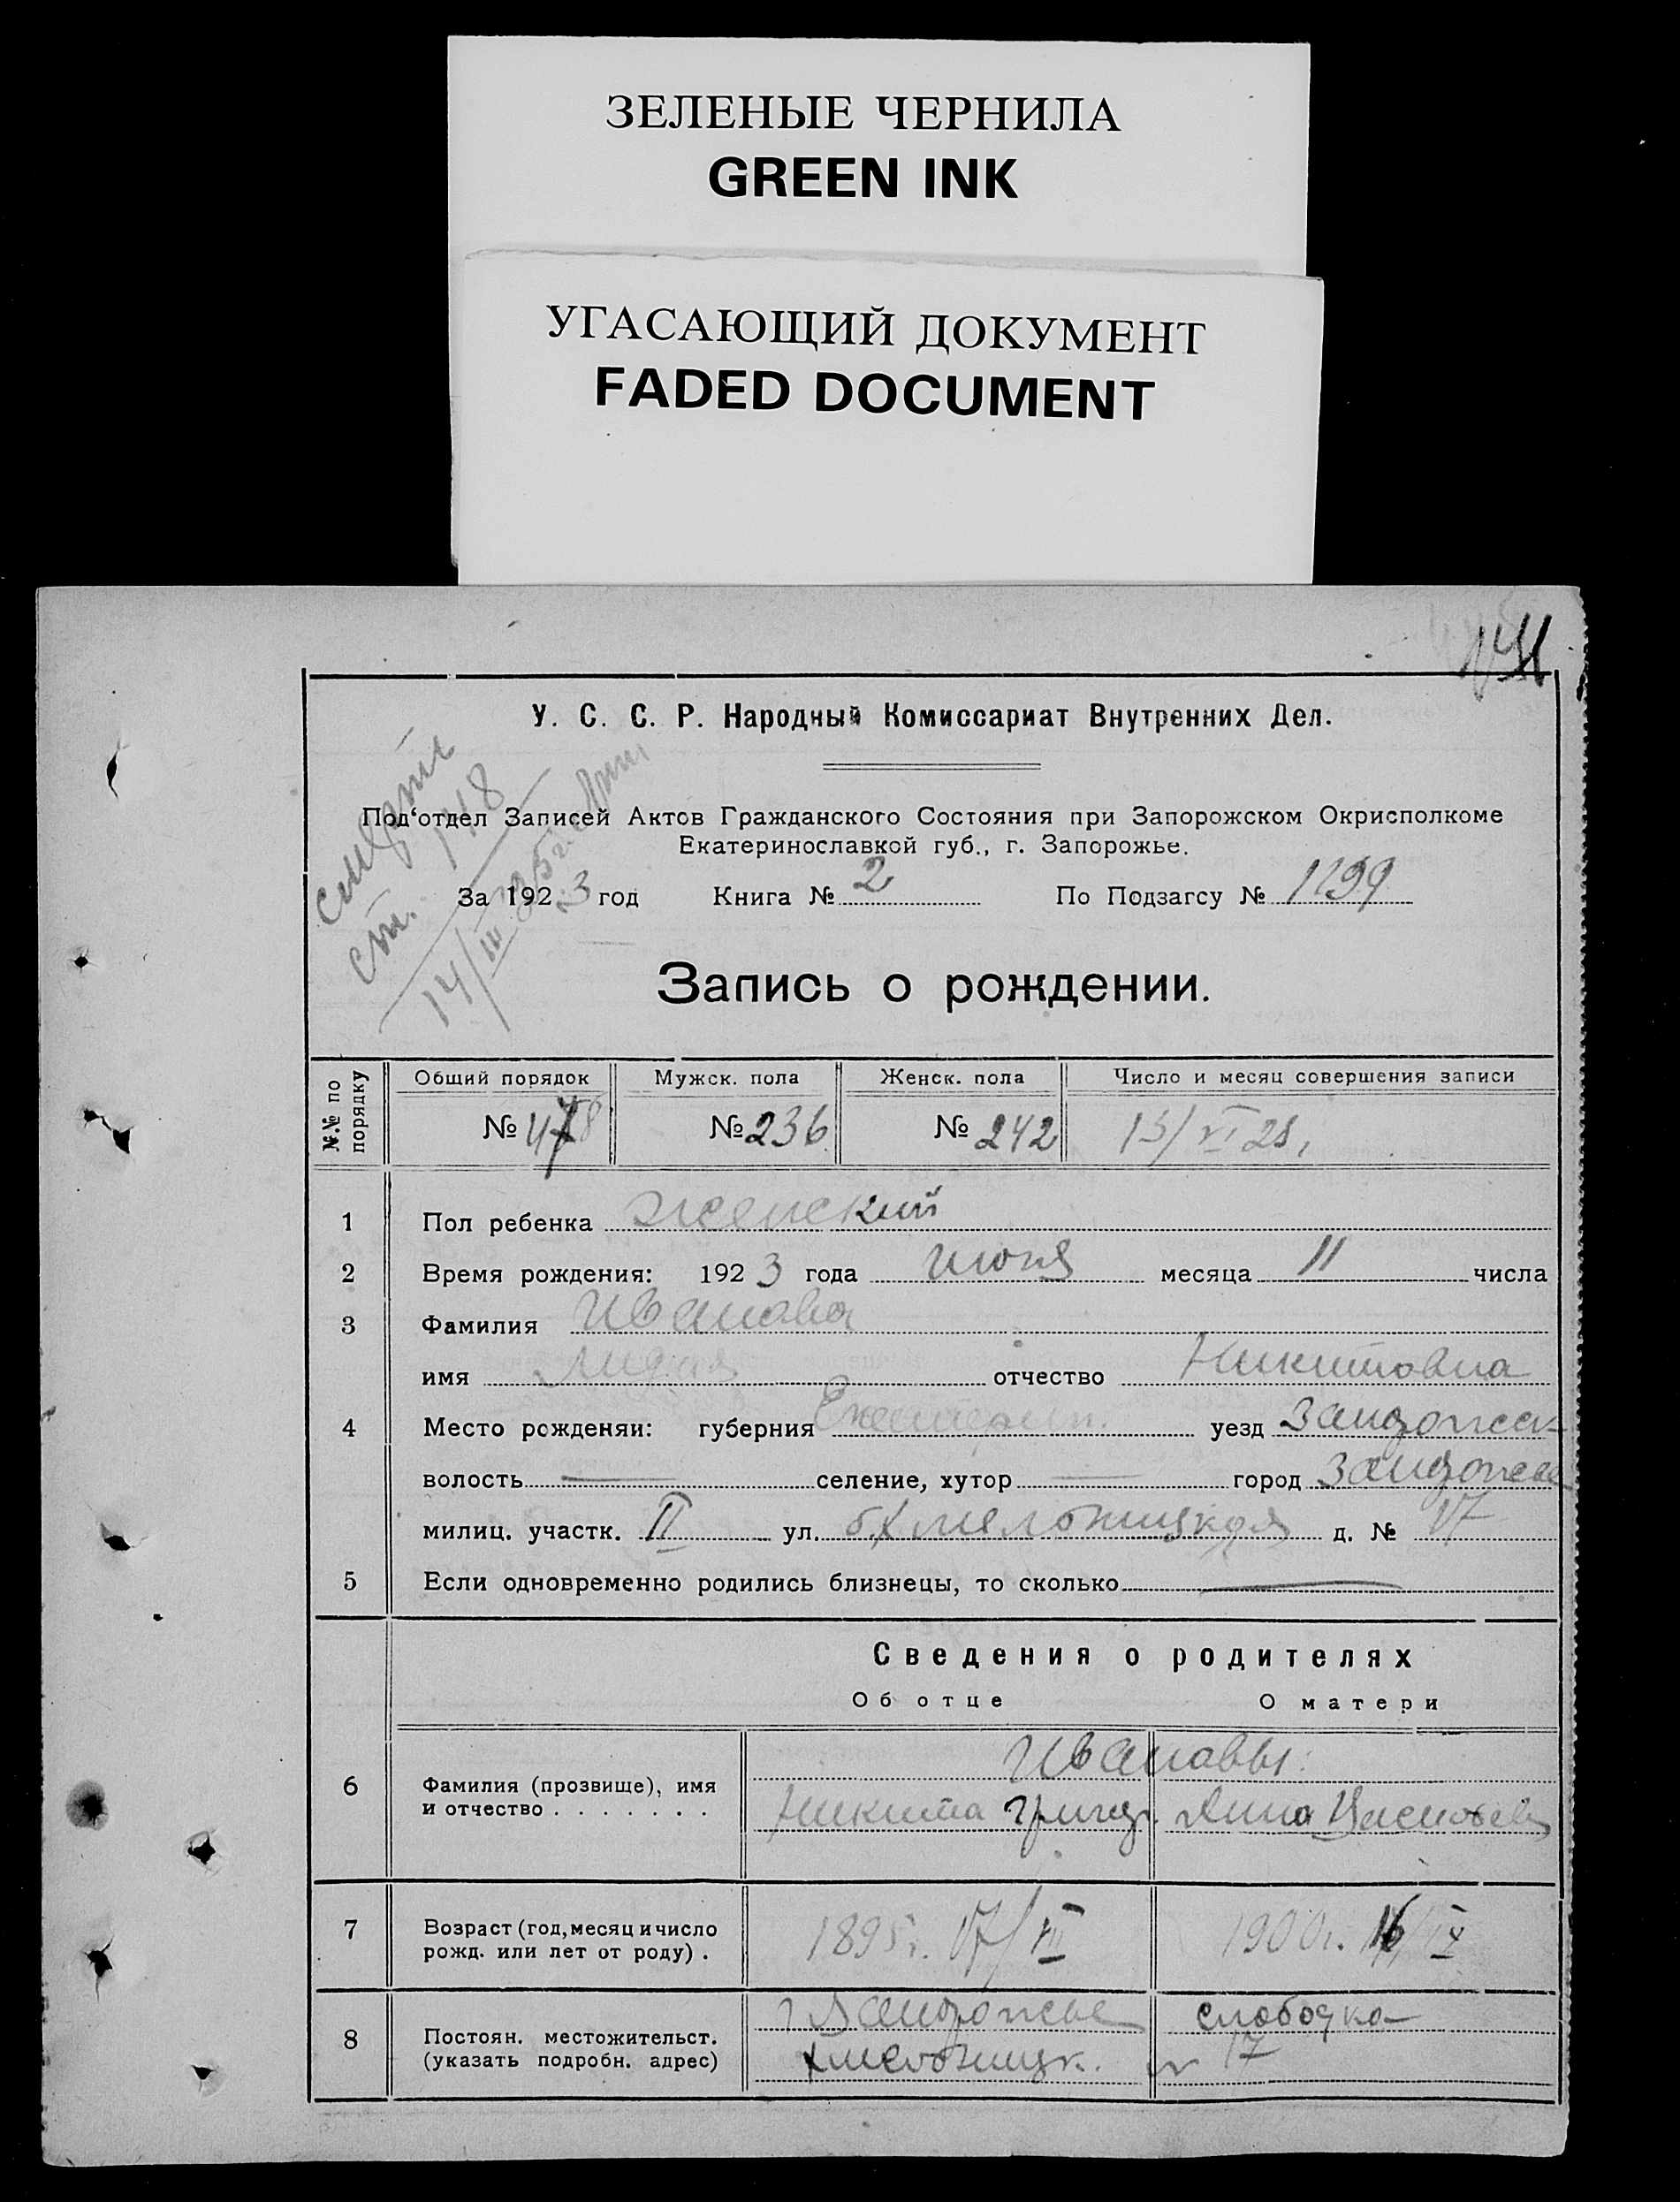 ЗЕЛЕНЫЕ ЧЕРНИЛА
GREEN INK
УГАСАЮЩИЙ ДОКУМЕНТ
FADED DOCUMENT
У. С. С. Р. Народный Комиссариат Внутренних Дел.
Под‘отдел Записей Актов Гражданского Состояния при Запорожском Окрисполкоме
Екатеринославкой губ., г. Запорожье.
За 1923 год Книга № 2 По Подзагсу № 1299
Запись о рождении.
№.№ по порядку
Общий порядок Мужск. пола Женск. пола Число и месяц совершения записи
№ 478 № 236 № 242 13/VI 23.
1 Пол ребенка женский
2 Время рождения: 1923 года июня месяца 11 числа
3 Фамилия Иванова
имя Лидия отчество Никитовна
4 Место рожденяи: губерния Екатерин. уезд Запорож-
волость селение, хутор город Запорожье
милиц. участк. II ул. б. Хмельницкая д. № 17
5 Если одновременно родились близнецы, то сколько
Сведения о родителях
Об отце О матери
Ивановы:
6 Фамилия (прозвище), имя
и отчество . . . . . . . Никита Григор. Анна
7 Возраст (год, месяц и число
рожд. или лет от роду) . 1895г. 17/VIII 1900г. 16/IX
г. Запорожье слободка
8 Постоян. местожительст.
(указать подробн. адрес) Хмельницк. № 17